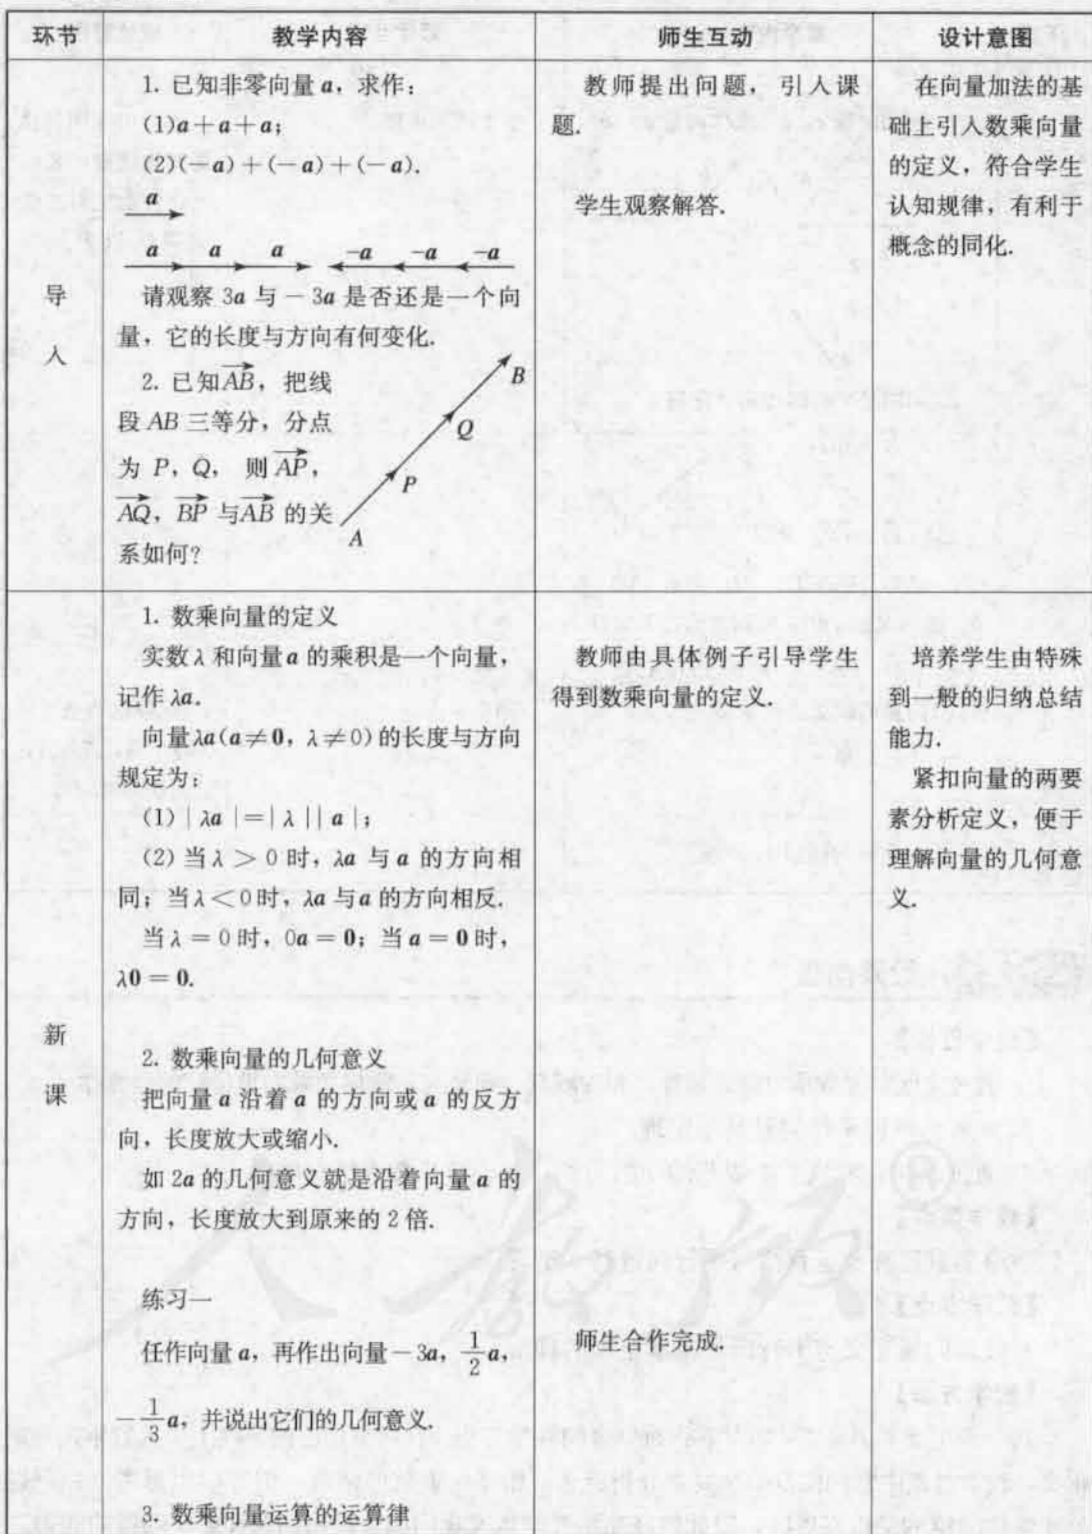 环节 教学内容 师生互动 设计意图
导
入
1. 已知非零向量 a，求作：
(1)a＋a＋a；
(2)(－a)＋(－a)＋(－a).
a
a a a －a －a －a
请观察 3a 与－3a 是否还是一个向
量，它的长度与方向有何变化.
2. 已知AB，把线
段 AB 三等分，分点
为 P，Q， 则 AP，
AQ，BP 与AB 的关
系如何？
B
Q
P
A
教师提出问题，引入课
题.
学生观察解答.
在向量加法的基
础上引入数乘向量
的定义，符合学生
认知规律，有利于
概念的同化.
新
课
1. 数乘向量的定义
实数 λ 和向量 a 的乘积是一个向量，
记作 λa.
向量λa(a≠0，λ≠0)的长度与方向
规定为：
(1) | λa |＝| λ || a |；
(2) 当 λ ＞ 0 时，λa 与 a 的方向相
同；当 λ＜0 时，λa 与 a 的方向相反.
当 λ ＝ 0 时，0a ＝ 0；当 a ＝ 0 时，
λ0 ＝ 0.
2. 数乘向量的几何意义
把向量 a 沿着 a 的方向或 a 的反方
向，长度放大或缩小.
如 2a 的几何意义就是沿着向量 a 的
方向，长度放大到原来的 2 倍.
练习一
任作向量 a，再作出向量－3a，1/2 a，
－1/3 a，并说出它们的几何意义.
3. 数乘向量运算的运算律
教师由具体例子引导学生
得到数乘向量的定义.
师生合作完成.
培养学生由特殊
到一般的归纳总结
能力.
紧扣向量的两要
素分析定义，便于
理解向量的几何意
义.
人教版